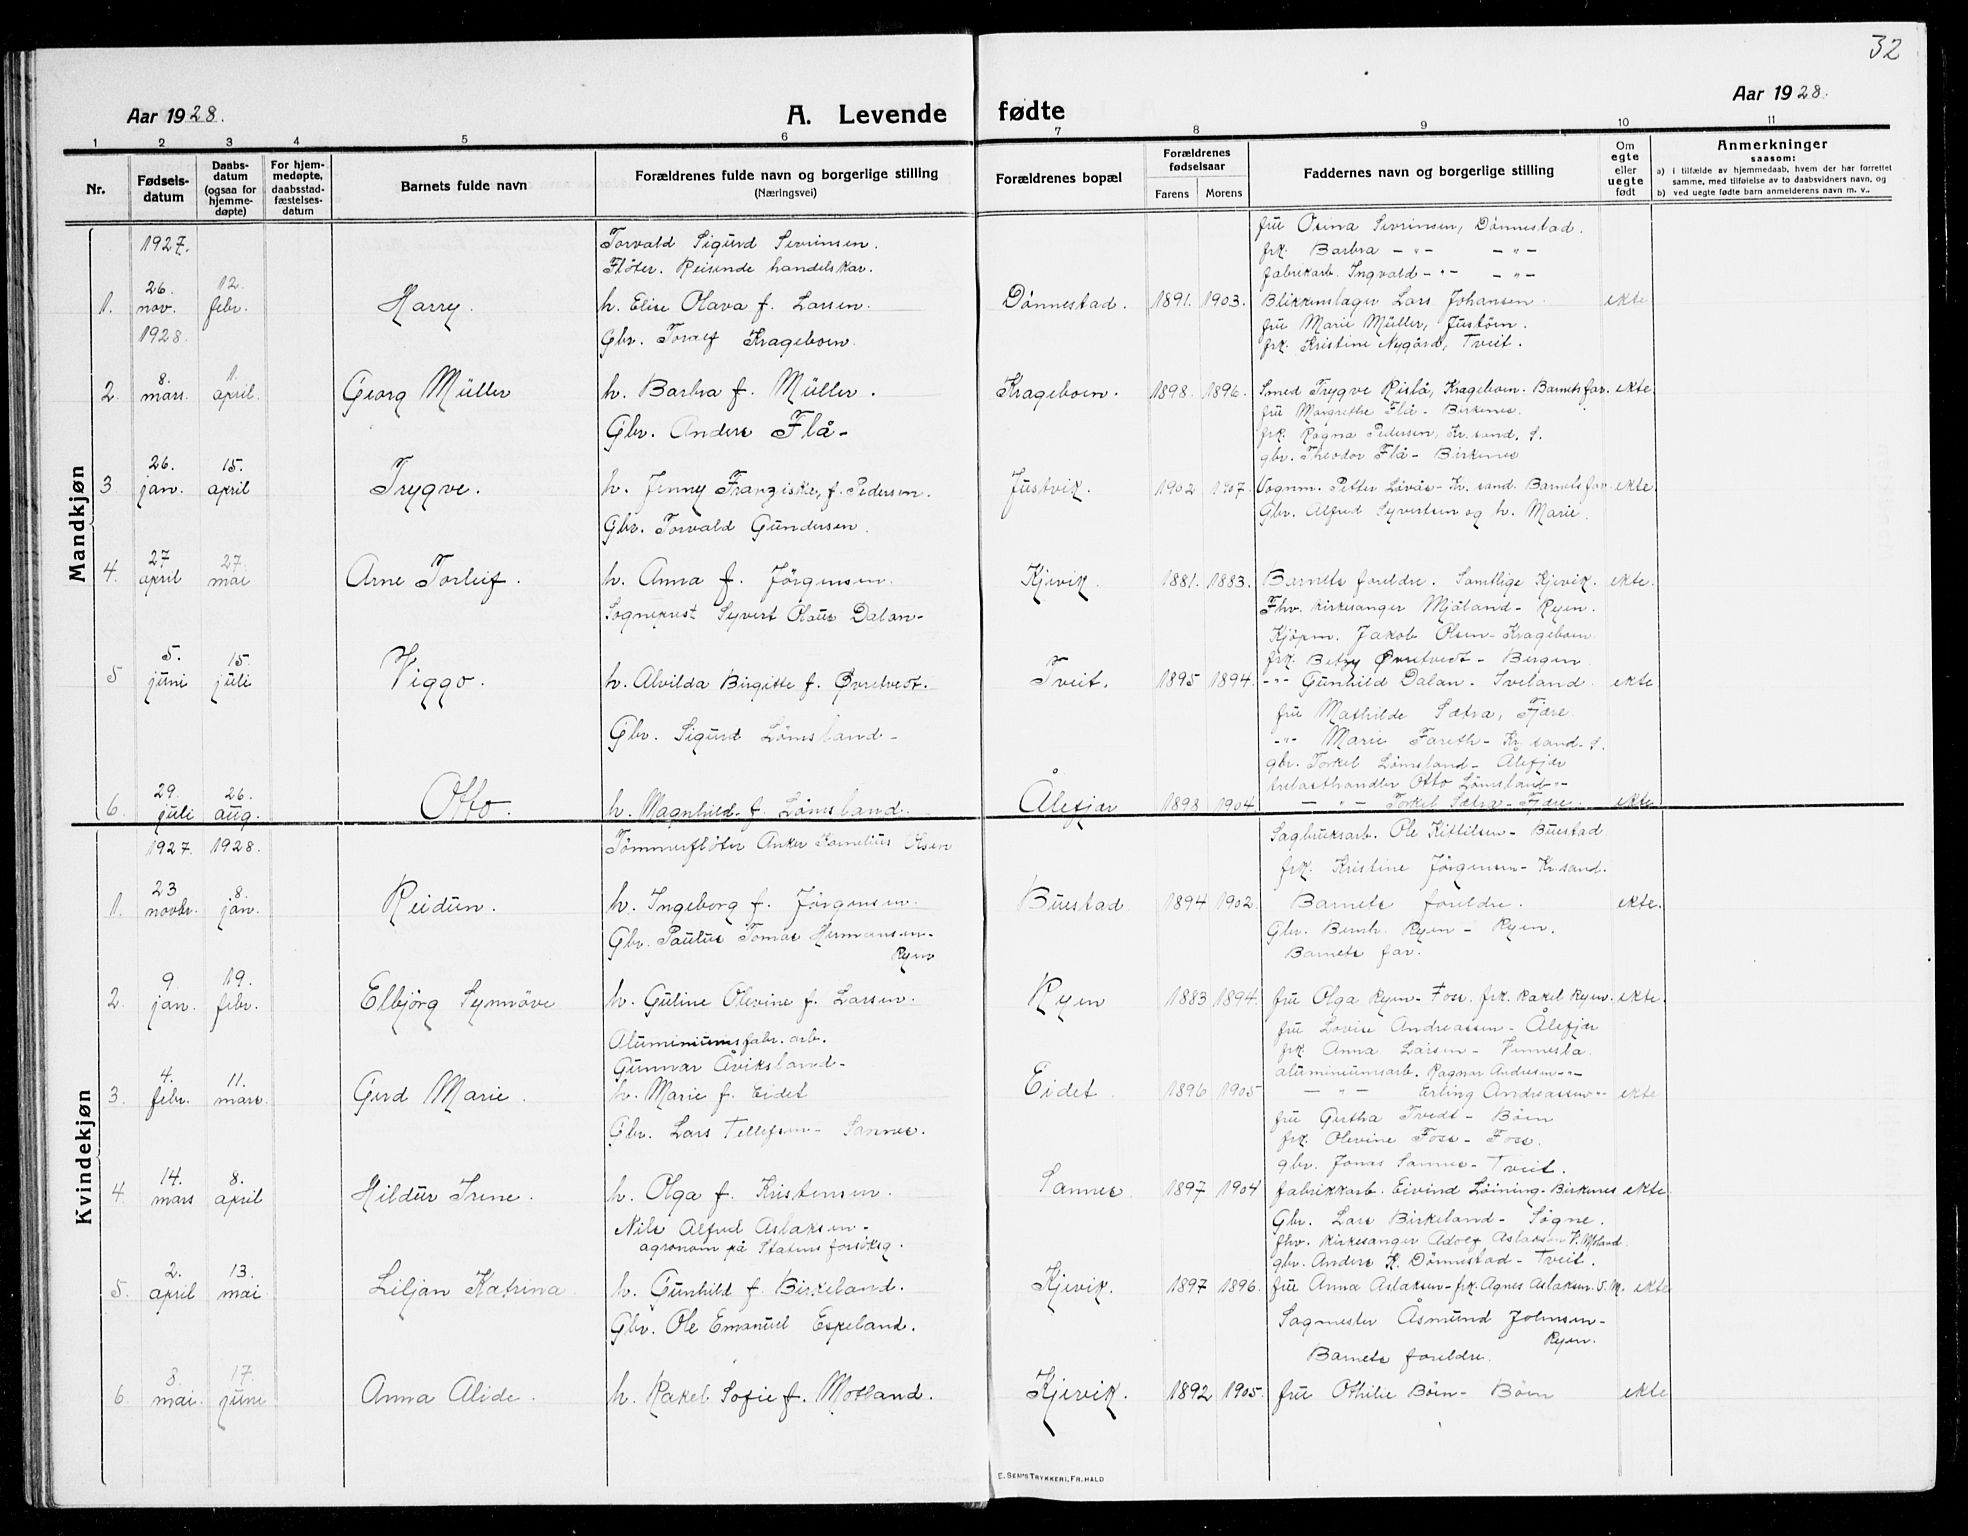 32
Aar 1928.
A. Levende fødte
Aar 1928.
1 2 3 4 5 6 7 8 9 10 11
Nr.
Fødselsdatum
Daabsdatum (ogsaa for hjemmedøpte)
For hjemmedøpte, daabsstadfæstelsesdatum
Barnets fulde navn
Forældrenes fulde navn og borgerlige stilling
(Næringsvei)
Forældrenes bopæl
Forældrenes fødselsaar
Farens Morens
Faddernes navn og borgerlige stilling
Om egte eller uegte født
Anmerkninger
saasom:
a) i tilfælde av hjemmedaab, hvem der har forrettet samme, med tilføielse av to daabsvidners navn, og
b) ved uegte fødte barn anmelderens navn m. v..
Mandkjøn
1927.
Torvald Sigurd Sevrinsen.
Fløter. Reisende handelskar.
fru Osina Sevrinsen, Dønnestad.
frk. Barbra -"- -"-
fabrikarb. Ingvald -"- -"-
1. 26. nov. 12. febr. Harry. h. Elise Olava f. Larsen. Dønnestad. 1891. 1903. Blikkenslager Lars Johansen ekte
1928.
fru Marie Müller, Justøen.
frk. Kristine Nygård, Tveit.
Gbr. Toralf Krageboen.
2. 8. mars. 1. april. Georg Müller h. Barbra f. Müller. Krageboen. 1898. 1896. Smed Trygve Rislå, Krageboen. Barnets far. ekte.
fru Margrethe Flå - Birkenes.
Gbr. Anders Flå-
frk. Ragna Pedersen, Kr.sand. S.
gbr. Theodor Flå - Birkenes
3 26. jan. 15. april Trygve. h. Jenny Franziska, f. Pedersen. Justvik. 1902 1907. Vognm. Petter Løvås - Kr. sand. Barnets far ekte.
Gbr. Alfred Syvertsen og h. Marie.
Gbr. Torvald Gundersen.
4. 27 april 27. mai Arne Torleif. h. Anna f. Jørgensen. Kjevik. 1881. 1883. Barnets foreldre. Samtlige Kjevik. ekte.
Fhv. kirkesanger Mjåland - Ryen.
Sogneprest Syvert Olaus Dalan-
Kjøpm. Jakob Olsen - Krageboen.
frk. Betzy Øvretvedt - Bergen.
5 5. juni 15. juli Viggo. h. Alvilda Birgitte f. Øvretvedt. Tveit. 1895 1894. -"- Gunhild Dalan - Sveland. ekte
fru Mathilde Sætra, Fjære.
-"- Marie Fareth - Kr.sand. S.
Gbr. Sigurd Lømsland-
gbr. Torkel Lømsland - Ålefjær
trelasthandler Otto Lømsland -"-
6. 29. juli 26. aug. Otto. h. Magnhild f. Lømsland. Ålefjær 1898 1904. -"- Torkel Sætra - Fjære. ekte
Kvindekjøn
1927. 1928.
Tømmerfløter Anker Kornelius Olsen
Sagbruksarb. Ole Kittilsen - Buestad
frk. Kristine Jørgensen - Kr.sand.
1. 23 novbr. 8. jan. Reidun. h. Ingeborg f. Jørgensen. Buestad 1894 1902. Barnets foreldre. ekte.
Gbr. Paulus Tomas Hermansen-
Ryen
Gbr. Bernh. Ryen - Ryen.
Barnets far.
2. 9. jan. 19. febr. Elbjörg Synnöve h. Guline Olevine f. Larsen. Ryen 1883 1894. fru Olga Ryen - Foss. frk. Rakel Ryen. ekte.
fru Lovise Andreassen - Ålefjær
frk. Anna Larsen - Vennesla.
Aluminiumsfabr. arb.
Gunnar Åviksland-
aluminiumsarb. Ragnar Andersen -"-
3. 4. febr. 11. mars Gerd Marie. h. Marie f. Eidet Eidet 1896 1905 -"- Erling Andreassen -"- ekte
fru Gertha Tvedt - Böen
frk. Olevine Foss - Foss.
Gbr. Lars Tellefsen - Sannes.
gbr. Jonas Sannes - Tveit.
4. 14. mars 8. april Hildur Irene. h. Olga f. Kristensen. Sannes 1897 1904 fabrikkarb. Eivind Løining - Birkenes ekte
Gbr. Lars Birkeland - Søgne.
Nils Alfred Aslaksen -
agronom på Statens forsøksg.
fhv. kirkesanger Adolf Aslaksen V. Moland.
gbr. Anders K. Dønnestad - Tveit.
5. 2. april 13. mai Liljan Katrina. h. Gunhild f. Birkeland. Kjevik. 1897 1896. fru Anna Aslaksen - frk. Agnes Aslaksen. V. M. ekte
Gbr. Ole Emanuel Espeland.
Sagmester Åsmund Johnsen -
Ryen.
Barnets foreldre.
6. 8. mai. 17. juni Anna Alide. h. Rakel Sofie f. Motland. Kjevik. 1892 1905. fru Othilie Böen - Böen ekte
E. SEM'S TRYKKERI, FR. HALD